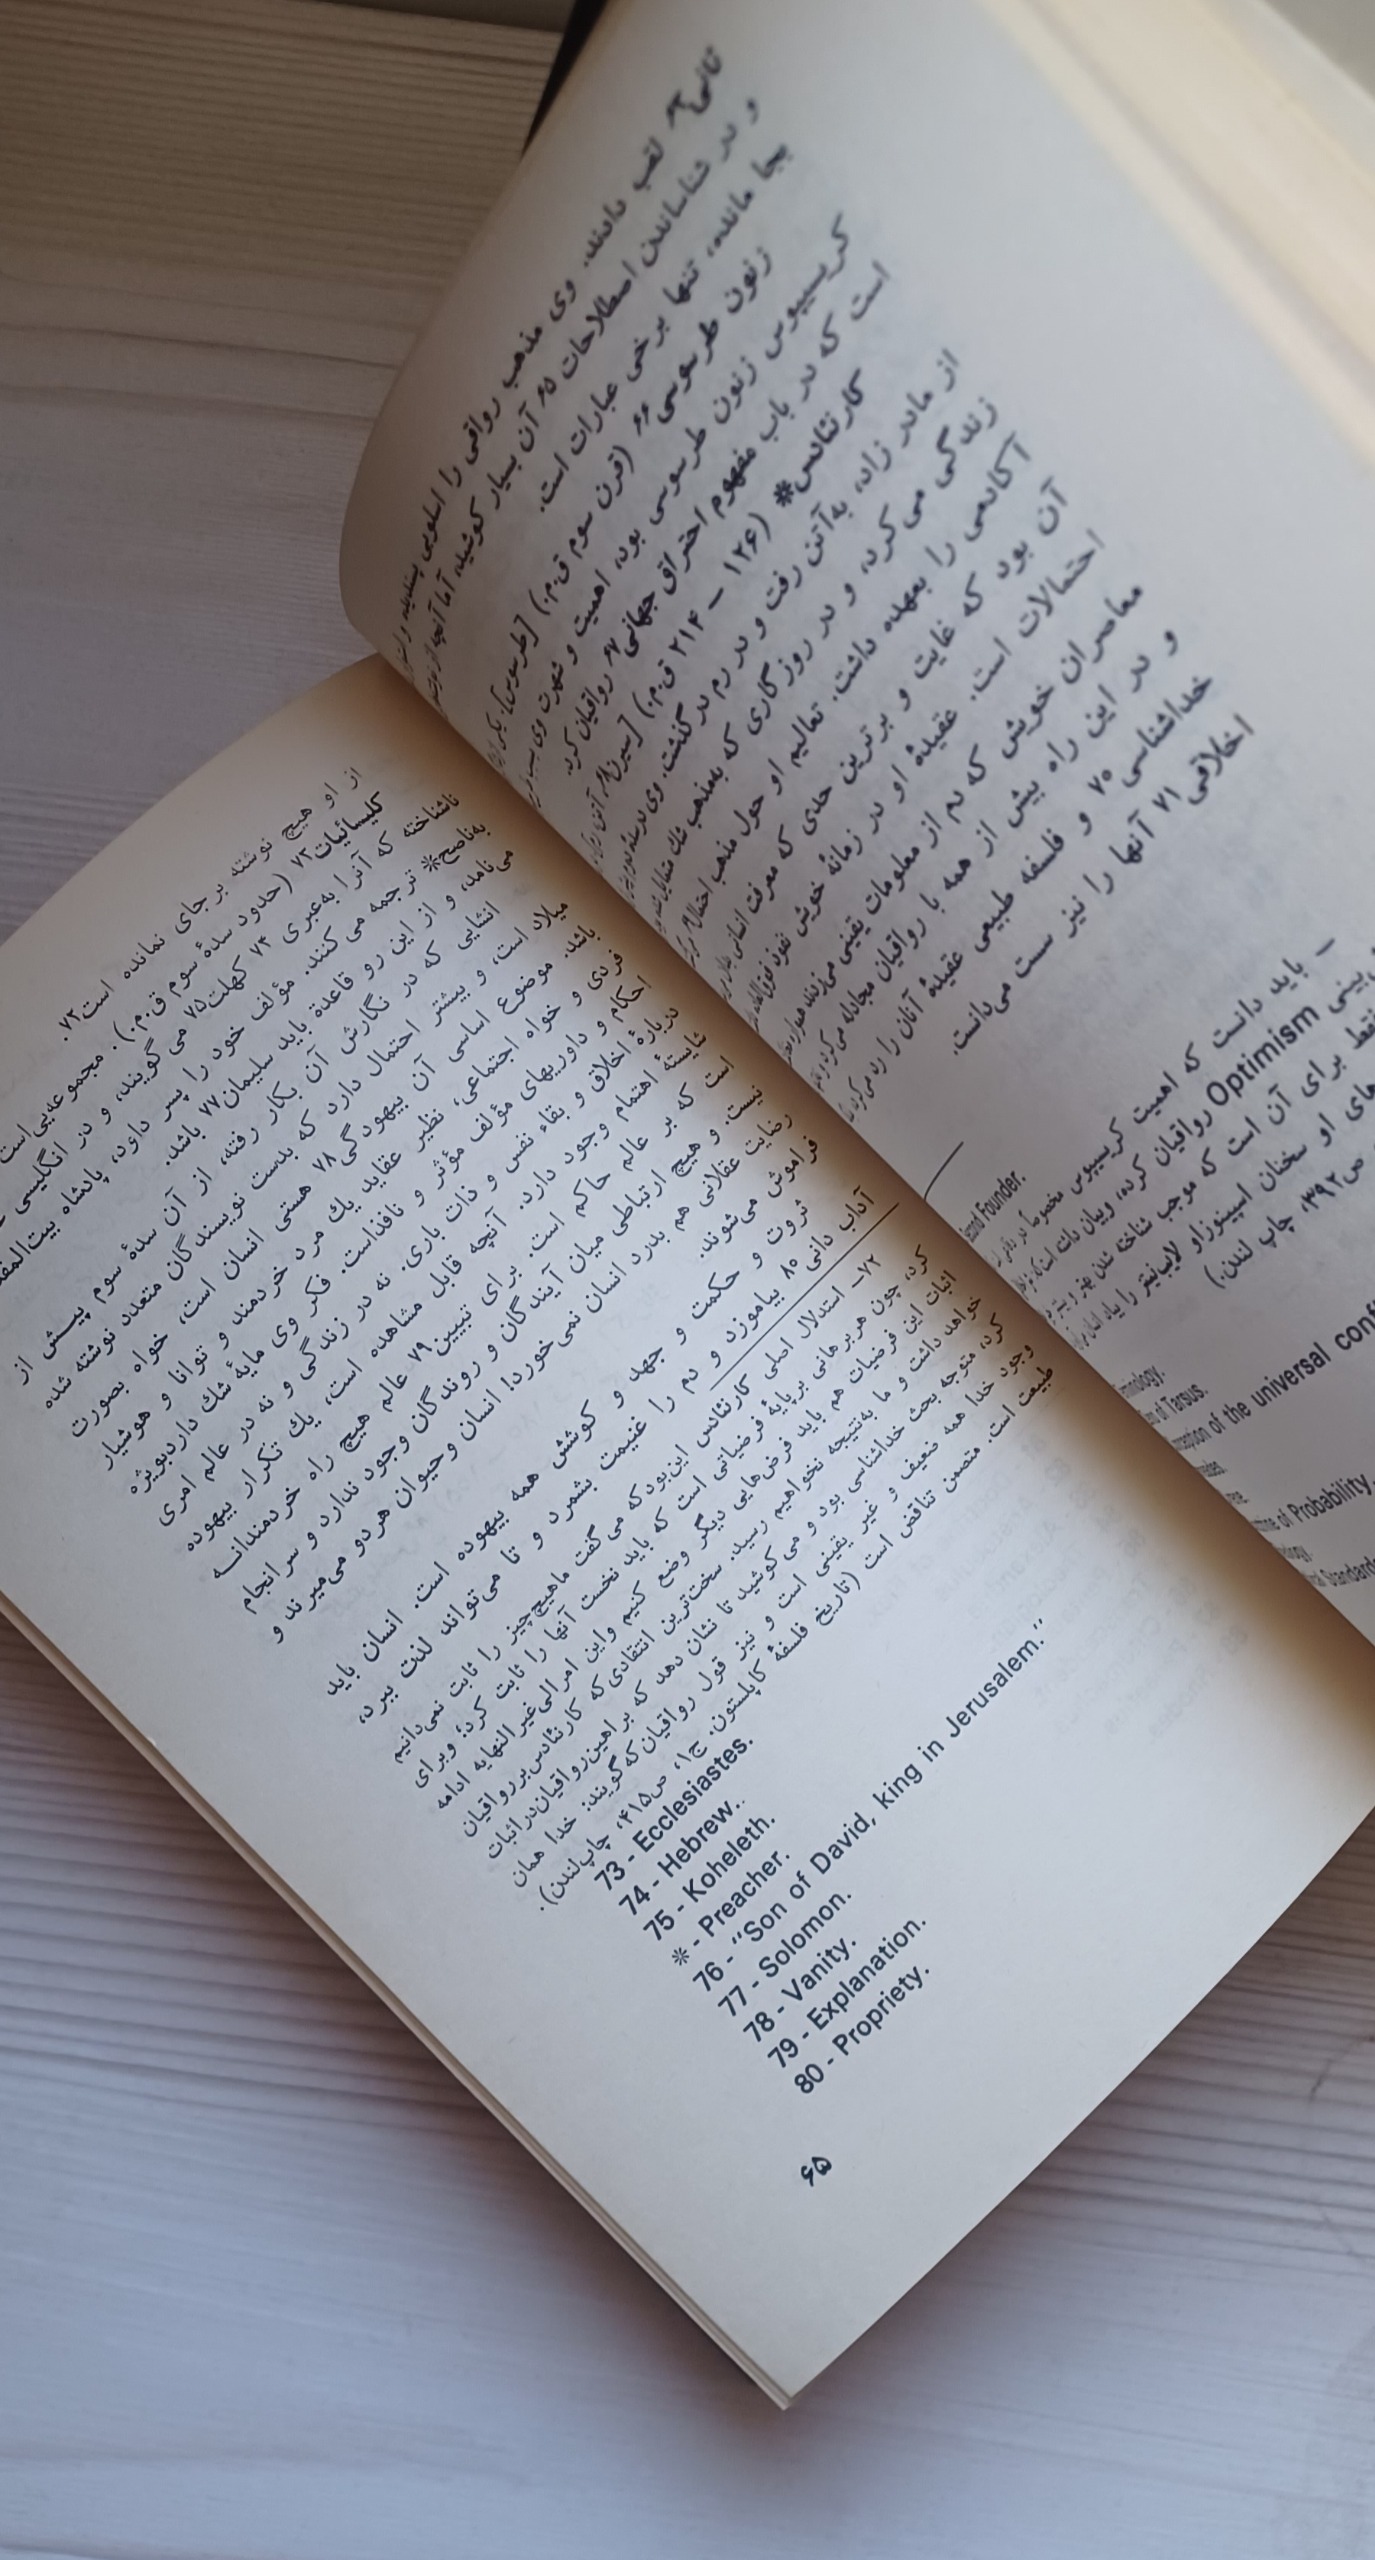 ثانی۶۴ لقب دادند. وی مذهب رواقی را اسلوبی پسندیده و
و در شناساندن اصطلاحات ۶۵ آن بسیار کوشید، اما آنچه از
بجا مانده، تنها برخی عبارات است.
زنون طرسوسی ۶۶ (قرن سوم ق.م.) [طرسوس]، یکی از
کریسیپوس زنون طرسوسی بود، اهمیت و شهرت وی
است که در باب مفهوم احتراق جهانی۶۷ رواقیان کرد.
کارنئادس❋ (۱۲۶ – ۲۱۴ ق.م.) [سیرن۶۸، آتن، رم]،
از مادر زاد، به‌آتن رفت و در رم درگذشت. وی در
زندگی می‌کرد، و در روزگاری که به‌مذهب شك
آکادمی را بعهده داشت. تعالیم او حول مذهب احتمال۶۹
آن بود که غایت و برترین حدی که معرفت انسانی
احتمالات است. عقیدهٔ او در زمانهٔ خویش نفوذ
معاصران خویش که دم از معلومات یقینی می‌زدند
و در این راه بیش از همه با رواقیان مجادله می‌کرد و
خداشناسی ۷۰ و فلسفه طبیعی عقیدهٔ آنان را رد می‌کرد
اخلاقی ۷۱ آنها را نیز سست می‌دانست.
باید دانست که اهمیت کریسیپوس مخصوصاً در
Optimism رواقیان کرده، وبیان داشته
فقط برای آن است که موجب شناخته شدن بهتر
های او سخنان اسپینوزاو لایب‌نیتز را بیاد
ص۳۹۲، چاپ لندن.)
Second Founder.
of Tarsus.
of the universal
of Probability.
Standard
از او هیچ نوشته برجای نمانده است۷۲.
کلیسائیات۷۳ (حدود سدهٔ سوم ق.م.). مجموعه‌یی است
ناشناخته که آنرا به‌عبری ۷۴ کهلت۷۵ می‌گویند، و در انگلیسی
به‌ناصح❋ ترجمه می‌کنند. مؤلف خود را پسر داود، پادشاه
می‌نامد، و از این رو قاعدة باید سلیمان۷۷ باشد.
انشایی که در نگارش آن بکار رفته، از آن سدهٔ سوم پیش از
میلاد است، و بیشتر احتمال دارد که بدست نویسندگان متعدد نوشته شده
باشد. موضوع اساسی آن بیهودگی۷۸ هستی انسان است، خواه بصورت
فردی و خواه اجتماعی، نظیر عقاید یك مرد خردمند و توانا و هوشیار
احکام و داوریهای مؤلف مؤثر و نافذاست. فکر وی مایهٔ شك داردبویژه
دربارهٔ اخلاق و بقاء نفس و ذات باری. نه در زندگی و نه در عالم امری
شایستهٔ اهتمام وجود دارد. آنچه قابل مشاهده است، یك تکرار بیهوده
است که بر عالم حاکم است. برای تبیین۷۹ عالم هیچ راه خردمندانه
نیست. و هیچ ارتباطی میان آیندگان و روندگان وجود ندارد و سرانجام
رضایت عقلانی هم بدرد انسان نمی‌خورد! انسان وحیوان هردو می‌میرند و
فراموش می‌شوند.
ثروت و حکمت و جهد و کوشش همه بیهوده است. انسان باید
آداب دانی ۸۰ بیاموزد و دم را غنیمت بشمرد و تا می‌تواند لذت ببرد،
۷۲– استدلال اصلی کارنئادس این‌بود که می‌گفت ماهیچ‌چیز را ثابت نمی‌دانیم
کرد، چون هربرهانی برپایهٔ فرضیاتی است که باید نخست آنها را ثابت کرد؛ وبرای
اثبات این فرضیات هم باید فرض‌هایی دیگر وضع کنیم واین امرالی‌غیرالنهایه ادامه
خواهد داشت و ما به‌نتیجه نخواهیم رسید. سخت‌ترین انتقادی‌که کارنئادس‌بررواقیان
کرد، متوجه بحث خداشناسی بود و می‌کوشید تا نشان دهد که براهین‌رواقیان‌دراثبات
وجود خدا همه ضعیف و غیر یقینی است و نیز قول رواقیان‌که‌گویند: خدا همان
طبیعت است. متضمن تناقض است (تاریخ فلسفهٔ کاپلستون. ج۱، ص۴۱۵، چاپ‌لندن).
73 - Ecclesiastes.
74 - Hebrew.
75 - Koheleth.
❋ - Preacher.
76 - "Son of David, king in Jerusalem."
77 - Solomon.
78 - Vanity.
79 - Explanation.
80 - Propriety.
۶۵